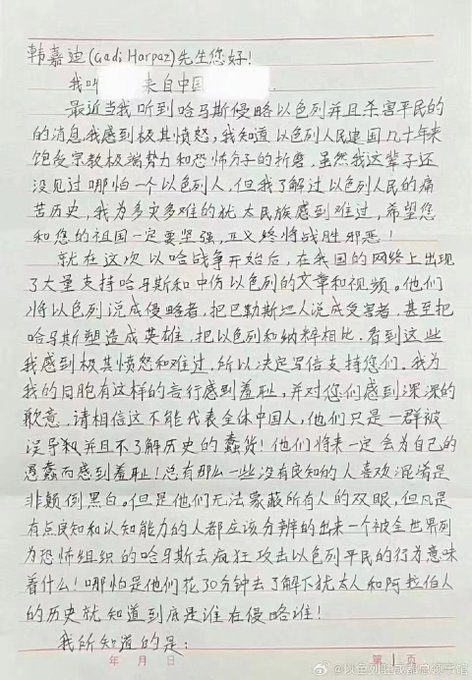 韩嘉迪(Gadi Harpaz)先生您好!
我叫 来自中国
最近当我听到哈马斯侵略以色列并且杀害平民的
的消息我感到极其愤怒,我知道以色列人民建国几十年来
饱受宗教极端势力和恐怖分子的折磨,虽然我这辈子还
没见过哪怕一个以色列人,但我了解过以色列人民的痛
苦历史,我为多灾多难的犹太民族感到难过,希望您
和您的祖国一定要坚强,正义终将战胜邪恶!
就在这次以哈战争开始后,在我国的网络上出现
了大量支持哈马斯和中伤以色列的文章和视频。他们
将以色列说成侵略者,把巴勒斯坦人说成受害者,甚至把
哈马斯塑造成英雄,把以色列和纳粹相比,看到这些
我感到极其愤怒和难过,所以决定写信支持您们。我为
我的同胞有这样的言行感到羞耻,并对您们感到深深的
歉意,请相信这不能代表全体中国人,他们只是一群被
误导教并且不了解历史的蠢货!他们将来一定会为自己的
愚蠢而感到羞耻!总有那么一些没有良知的人喜欢混淆是
非颠倒黑白。但是他们无法蒙蔽所有人的双眼,但凡是
有点良知和认知能力的人都应该分辨的出来一个被全世界列
为恐怖组织的哈马斯去疯狂攻击以色列平民的行为意味
着什么!哪怕是他们花30分钟去了解下犹太人和阿拉伯人
的历史就知道到底是谁在侵略谁!
我所知道的是:
年 月 日 第 1 页
@以色列驻成都总领事馆